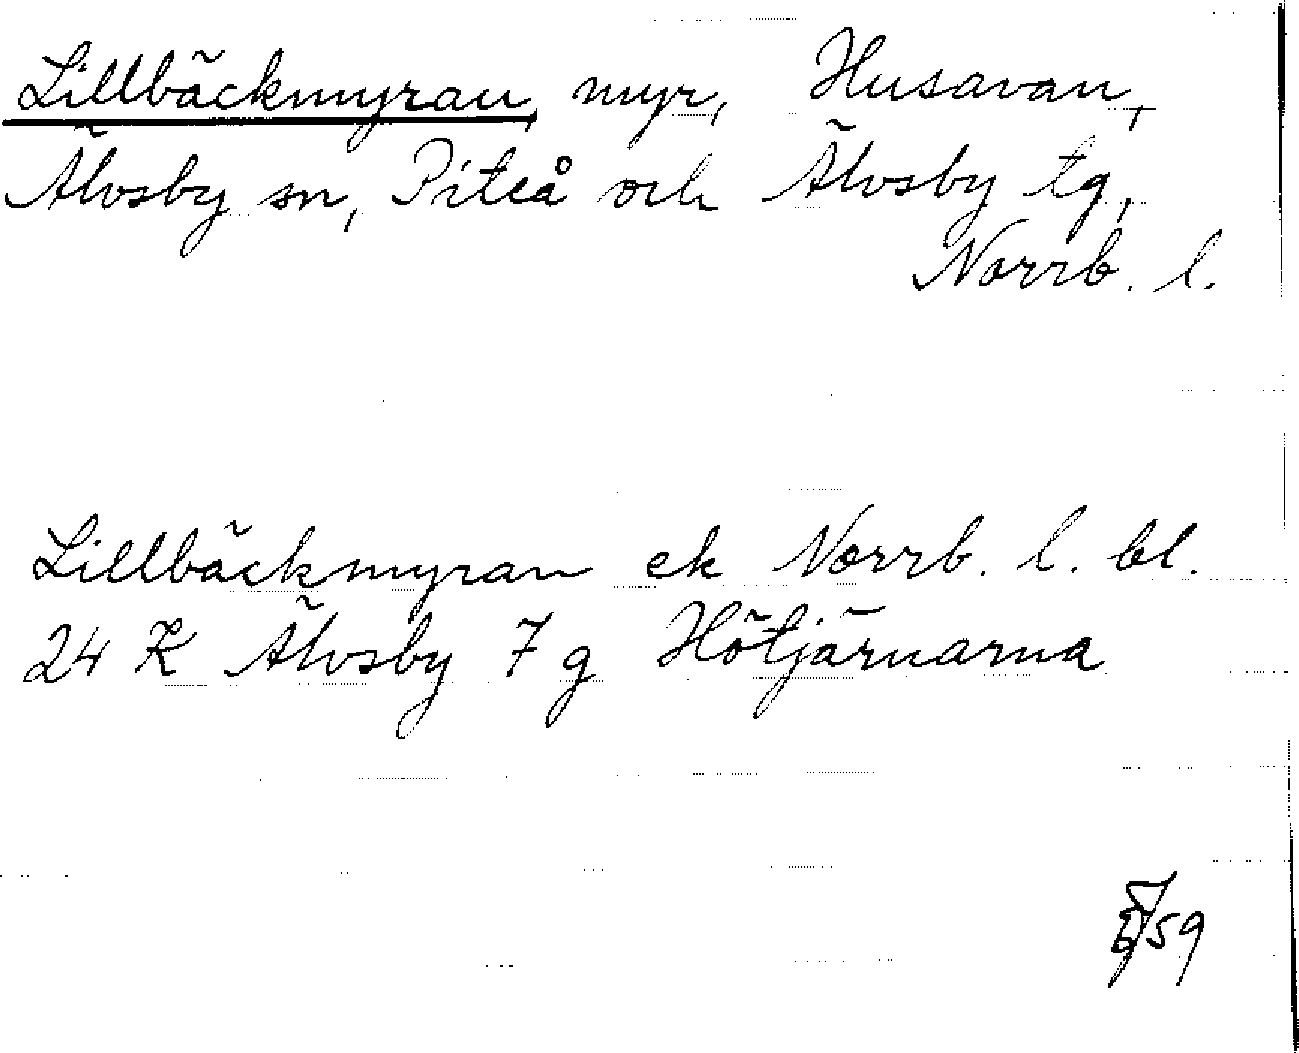 Lillbäckmyran, myr, Husavan,
Älvsby sn, Piteå och Älvsby tg,
Norrb. l.
Lillbäckmyran ek Norrb. l. bl.
24 K Älvsby 7 g Hötjärnarna
59